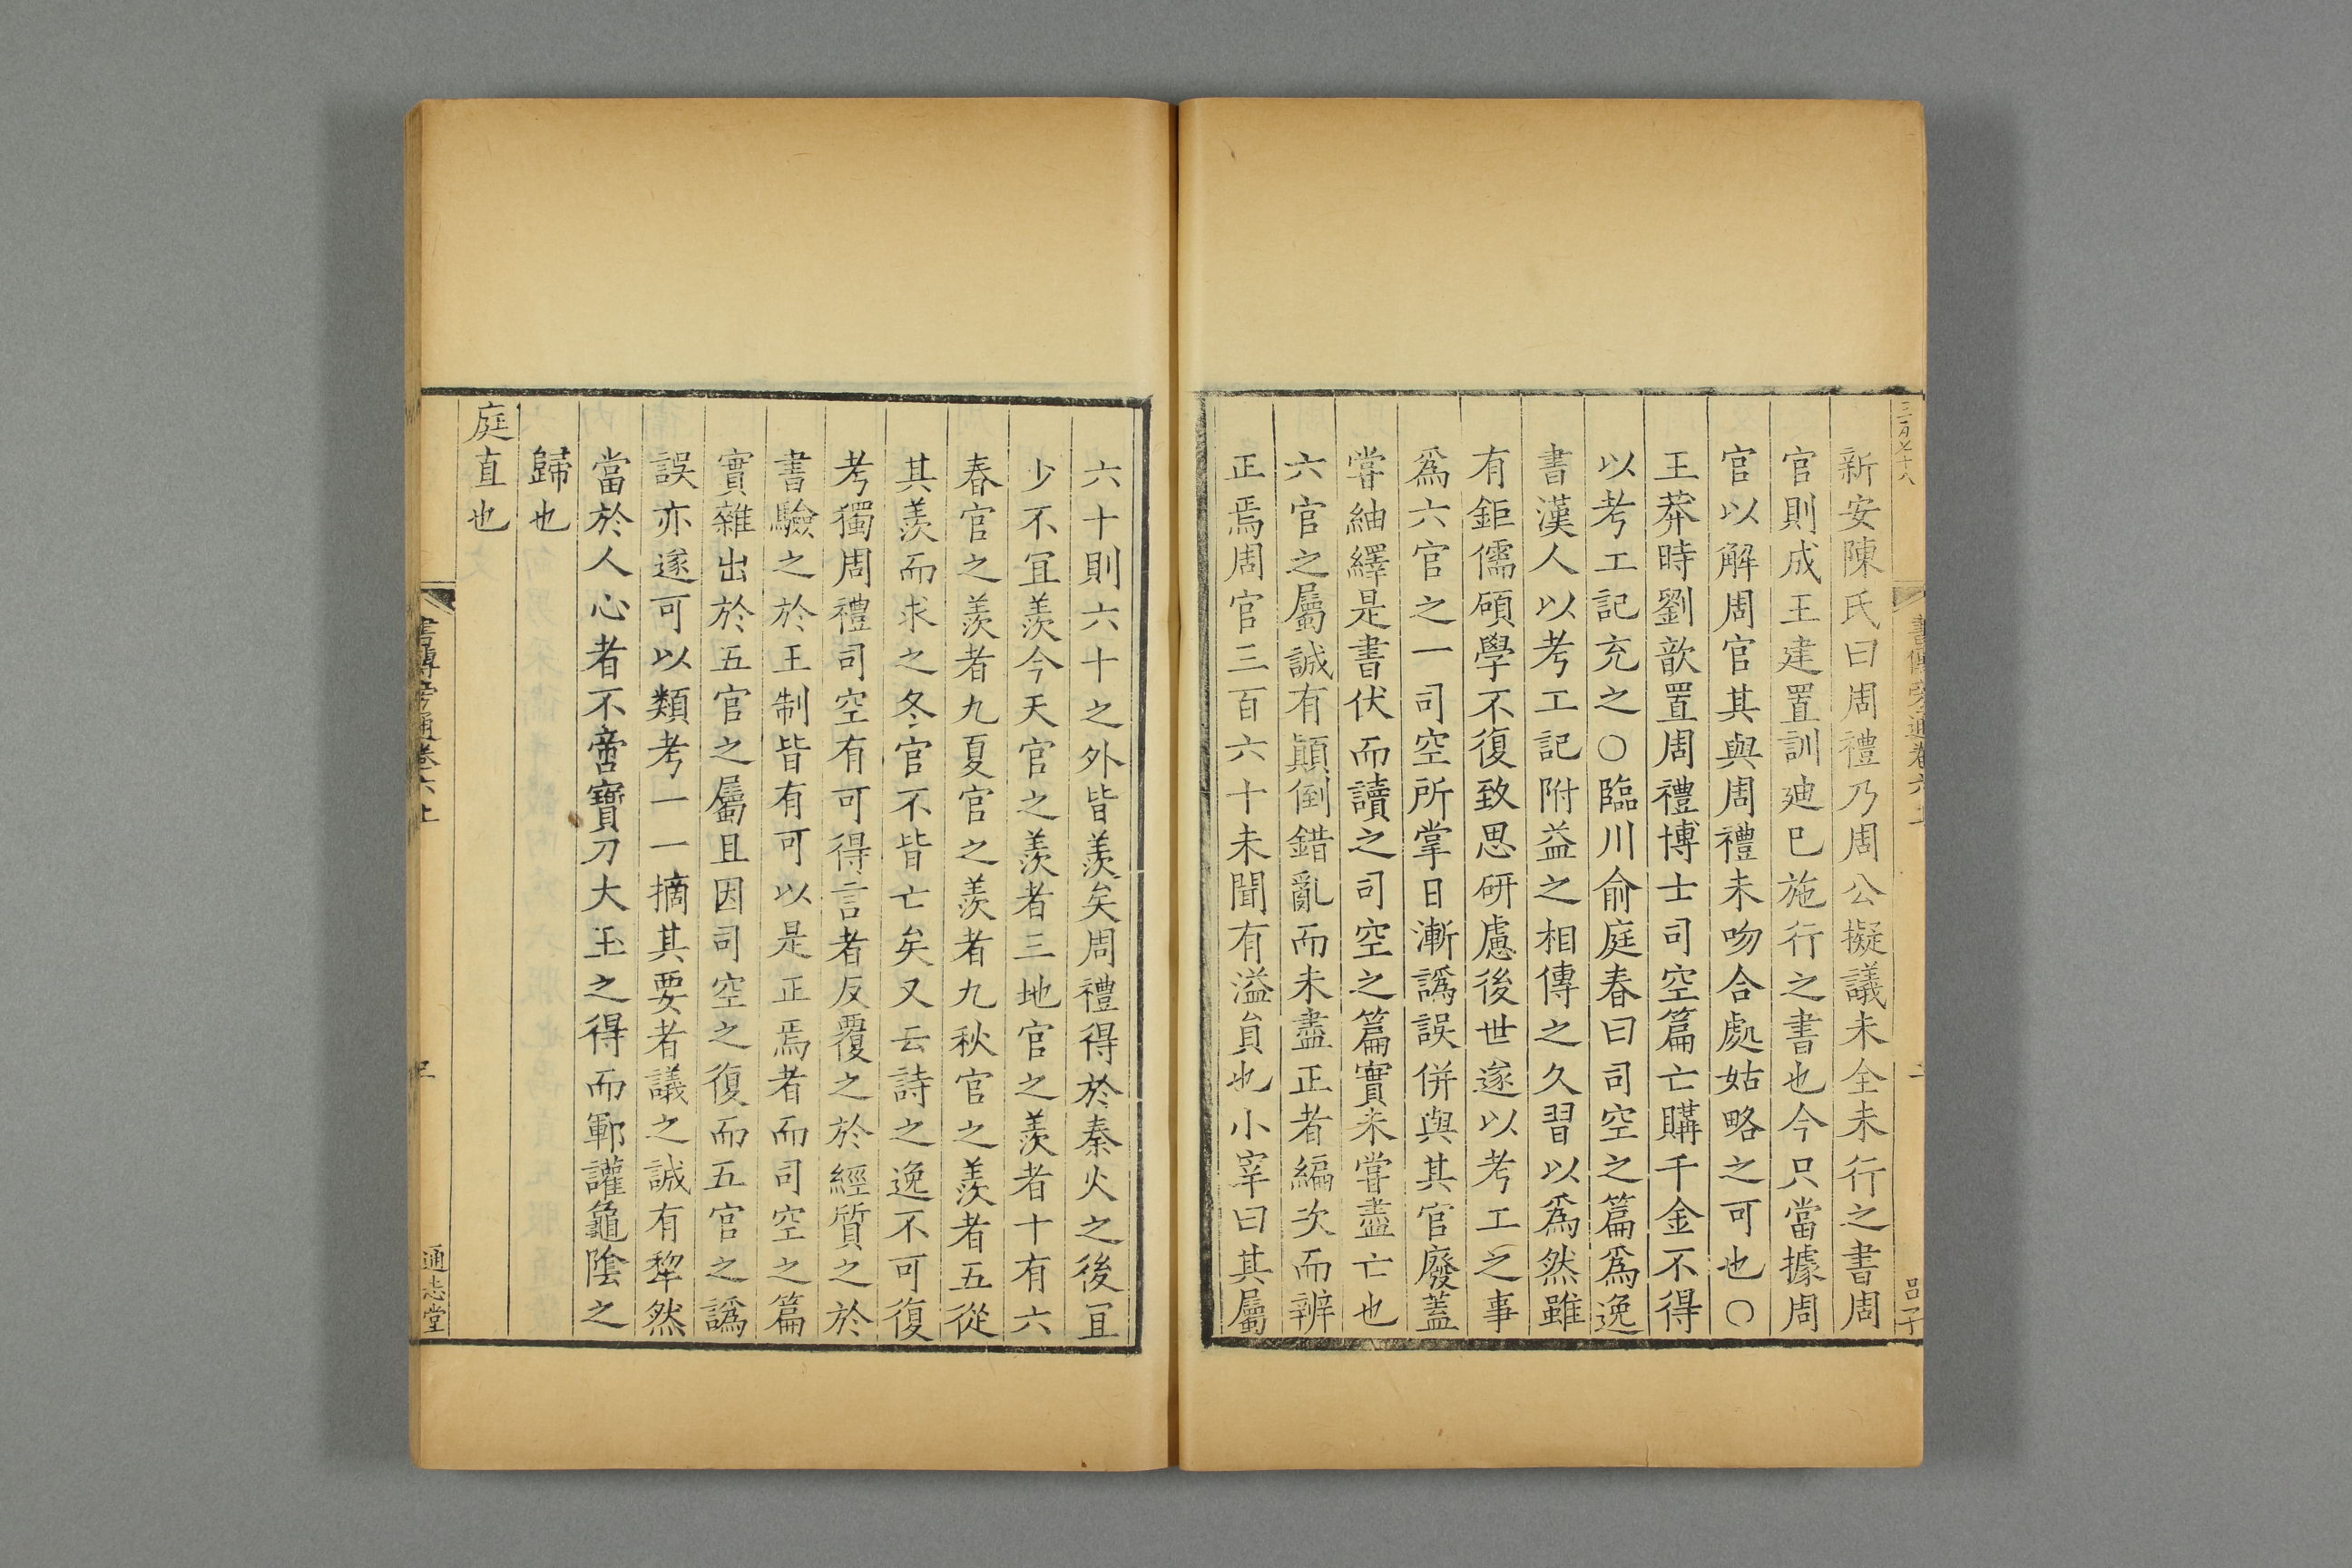 新安陳氏曰周禮乃周公擬議未全未行之書周
官則成王建置訓廸已施行之書也今只當據周
官以解周官其與周禮未吻合處姑略之可也○
王莽時劉歆置周禮博士司空篇亡購千金不得
以考工記充之○臨川俞庭春曰司空之篇爲逸
書漢人以考工記附益之相傳之久習以爲然雖
有鉅儒碩學不復致思研慮後世遂以考工之事
爲六官之一司空所掌日漸譌誤併與其官廢蓋
嘗紬繹是書伏而讀之司空之篇實未嘗盡亡也
六官之屬誠有顚倒錯亂而未盡正者編次而辨
正焉周官三百六十未聞有溢員也小宰曰其屬
六十則六十之外皆羨矣周禮得於秦火之後冝
少不冝羨今天官之羨者三地官之羨者十有六
春官之羨者九夏官之羨者九秋官之羨者五從
其羨而求之冬官不皆亡矣又云詩之逸不可復
考獨周禮司空有可得言者反覆之於經質之於
書驗之於王制皆有可以是正焉者而司空之篇
實雜出於五官之屬且因司空之復而五官之譌
誤亦遂可以類考一一摘其要者議之誠有犂然
當於人心者不啻寶刀大玉之得而鄆讙龜陰之
歸也
庭直也
書傳旁通卷六上
通志堂